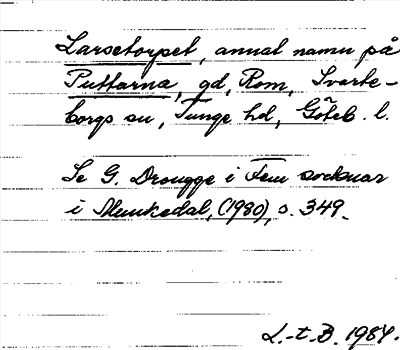 Larsetorpet, annat namn på
Puttarna, gd, Rom, Svarte-
borgs sn, Tunge hd, Göteb. l.
Se G. Drougge i Fem socknar
i Munkedal, (1980), s. 349.
L.-t-B. 1984.